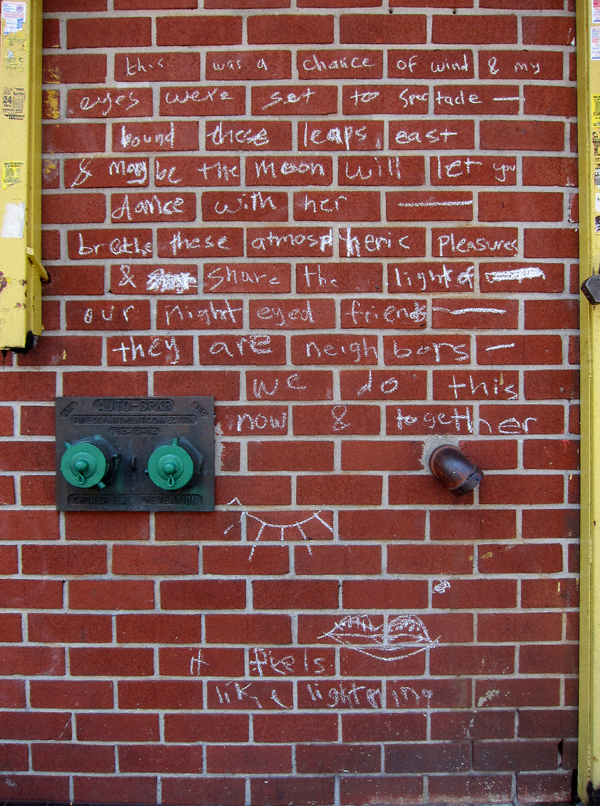 this was a chance of wind & my
eyes were set to spectacle —
bound these leaps, east
& maybe the moon will let you
dance with her —
breathe these atmospheric pleasures
& share the light of
our night eyed friends —
they are neighbors —
we do this
now & together
AUTO-SPKR
FIRE DEPARTMENT CONNECTION
it feels
like lightening